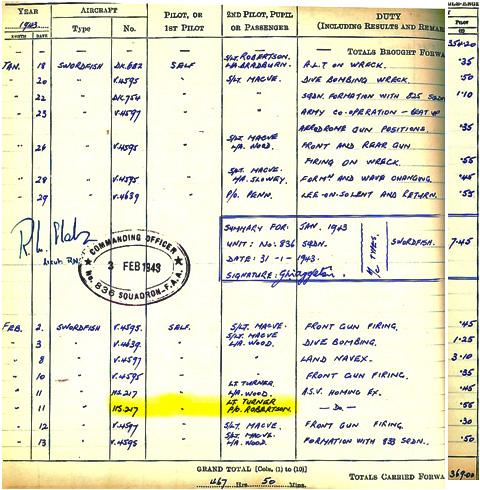 YEAR AIRCRAFT PILOT, OR 2ND PILOT, PUPIL DUTY PILOT
1943. 1ST PILOT OR PASSENGER (INCLUDING RESULTS AND REMAR
MONTH DATE Type No.
TOTALS BROUGHT FORWA
JAN. 18 SWORDFISH DK.682 SELF S/LT. ROBERTSON. L/A. BRADBURN. A.L.T ON WRECK. .35
20 " V.4595 " S/LT. MACVE. DIVE BOMBING WRECK. .50
22 " DK.754 " " SQDN FORMATION WITH 825 SQDN 1.10
23 " V.4597 " " ARMY CO-OPERATION - BEAT UP
AERODROME GUN POSITIONS. .35
26 " V.4595 " S/LT MACVE L/A. WOOD. FRONT AND REAR GUN
FIRING ON WRECK. .55
28 " V.4595 " S/LT. MACVE. L/A. SLOWEY. FORMN AND WAVE CHANGING. .45
29 " V.4639 " P/O. PENN. LEE-ON-SOLENT AND RETURN. .55
SUMMARY FOR: JAN. 1943
UNIT: No: 836 SQDN.
DATE: 31-1-1943.
SIGNATURE:
A/C TYPES. SWORDFISH. 7.45
COMMANDING OFFICER
3 FEB 1943
No. 836 SQUADRON-F.A.A.
FEB. 2. SWORDFISH V.4595. SELF. S/LT. MACVE. FRONT GUN FIRING. .45
3 " V.4639. " S/LT MACVE L/A. WOOD. DIVE BOMBING. 1.25
8 " V.4597 " " LAND NAVEX. 3.10
10 " V.4595 " " FRONT GUN FIRING. .35
11 " HS.217 " LT TURNER. L/A. WOOD. A.S.V. HOMING EX. .45
11 " HS.217 " LT TURNER P/O. ROBERTSON. — Do — .55
12 " V.4597 " S/LT MACVE FRONT GUN FIRING. .30
13 " V.4595 " S/LT. MACVE. L/A. WOOD. FORMATION WITH 833 SQDN. .50
GRAND TOTAL [Cols. (1) to (10)]
467 Hrs. 50 Mins.
TOTALS CARRIED FORWA 369.00